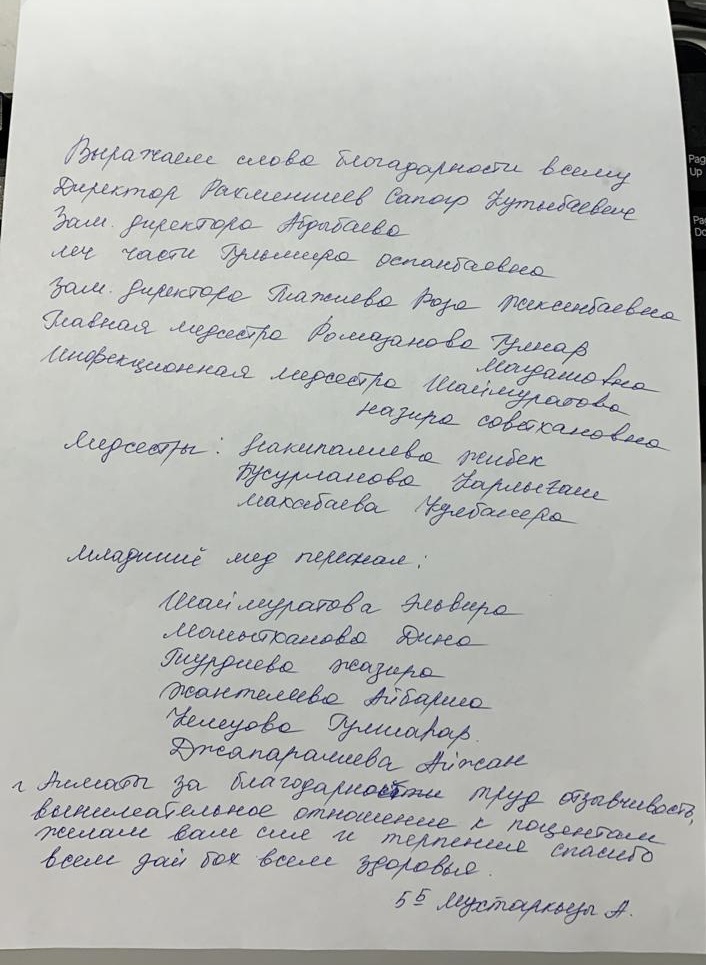 Выражаем слова блогадарности всему
Директор Рахменшиев Сапар Кутыбаевич
Зам. директора Абдыбаева
леч части Гульмира оспанбаевна
Зам. директора Тажиева Роза жаксенбаевна
Главная медсестра Ромазанова Гулнар
Маудановна
Инфекционная медсестра Шаймуратова
назира советхановна
Медсестры: Накипалиева жибек
Бусурманова Карлыгаш
Максбаева Гулбахера
Младший мед персонал:
Шаймуратова Эльвира
Момытханова Дина
Турдиева жазира
Жантелиева Айбарша
Келеуова Гулшарар.
Джапаралиева Айжан
г Алматы за благодарности труд отзывчивость,
вынимательное отношение к поцентам
желам вам сил и терпение спасибо
всем дай бох всем здоровья.
5 Б Мухтаркызы А.
Page
Up